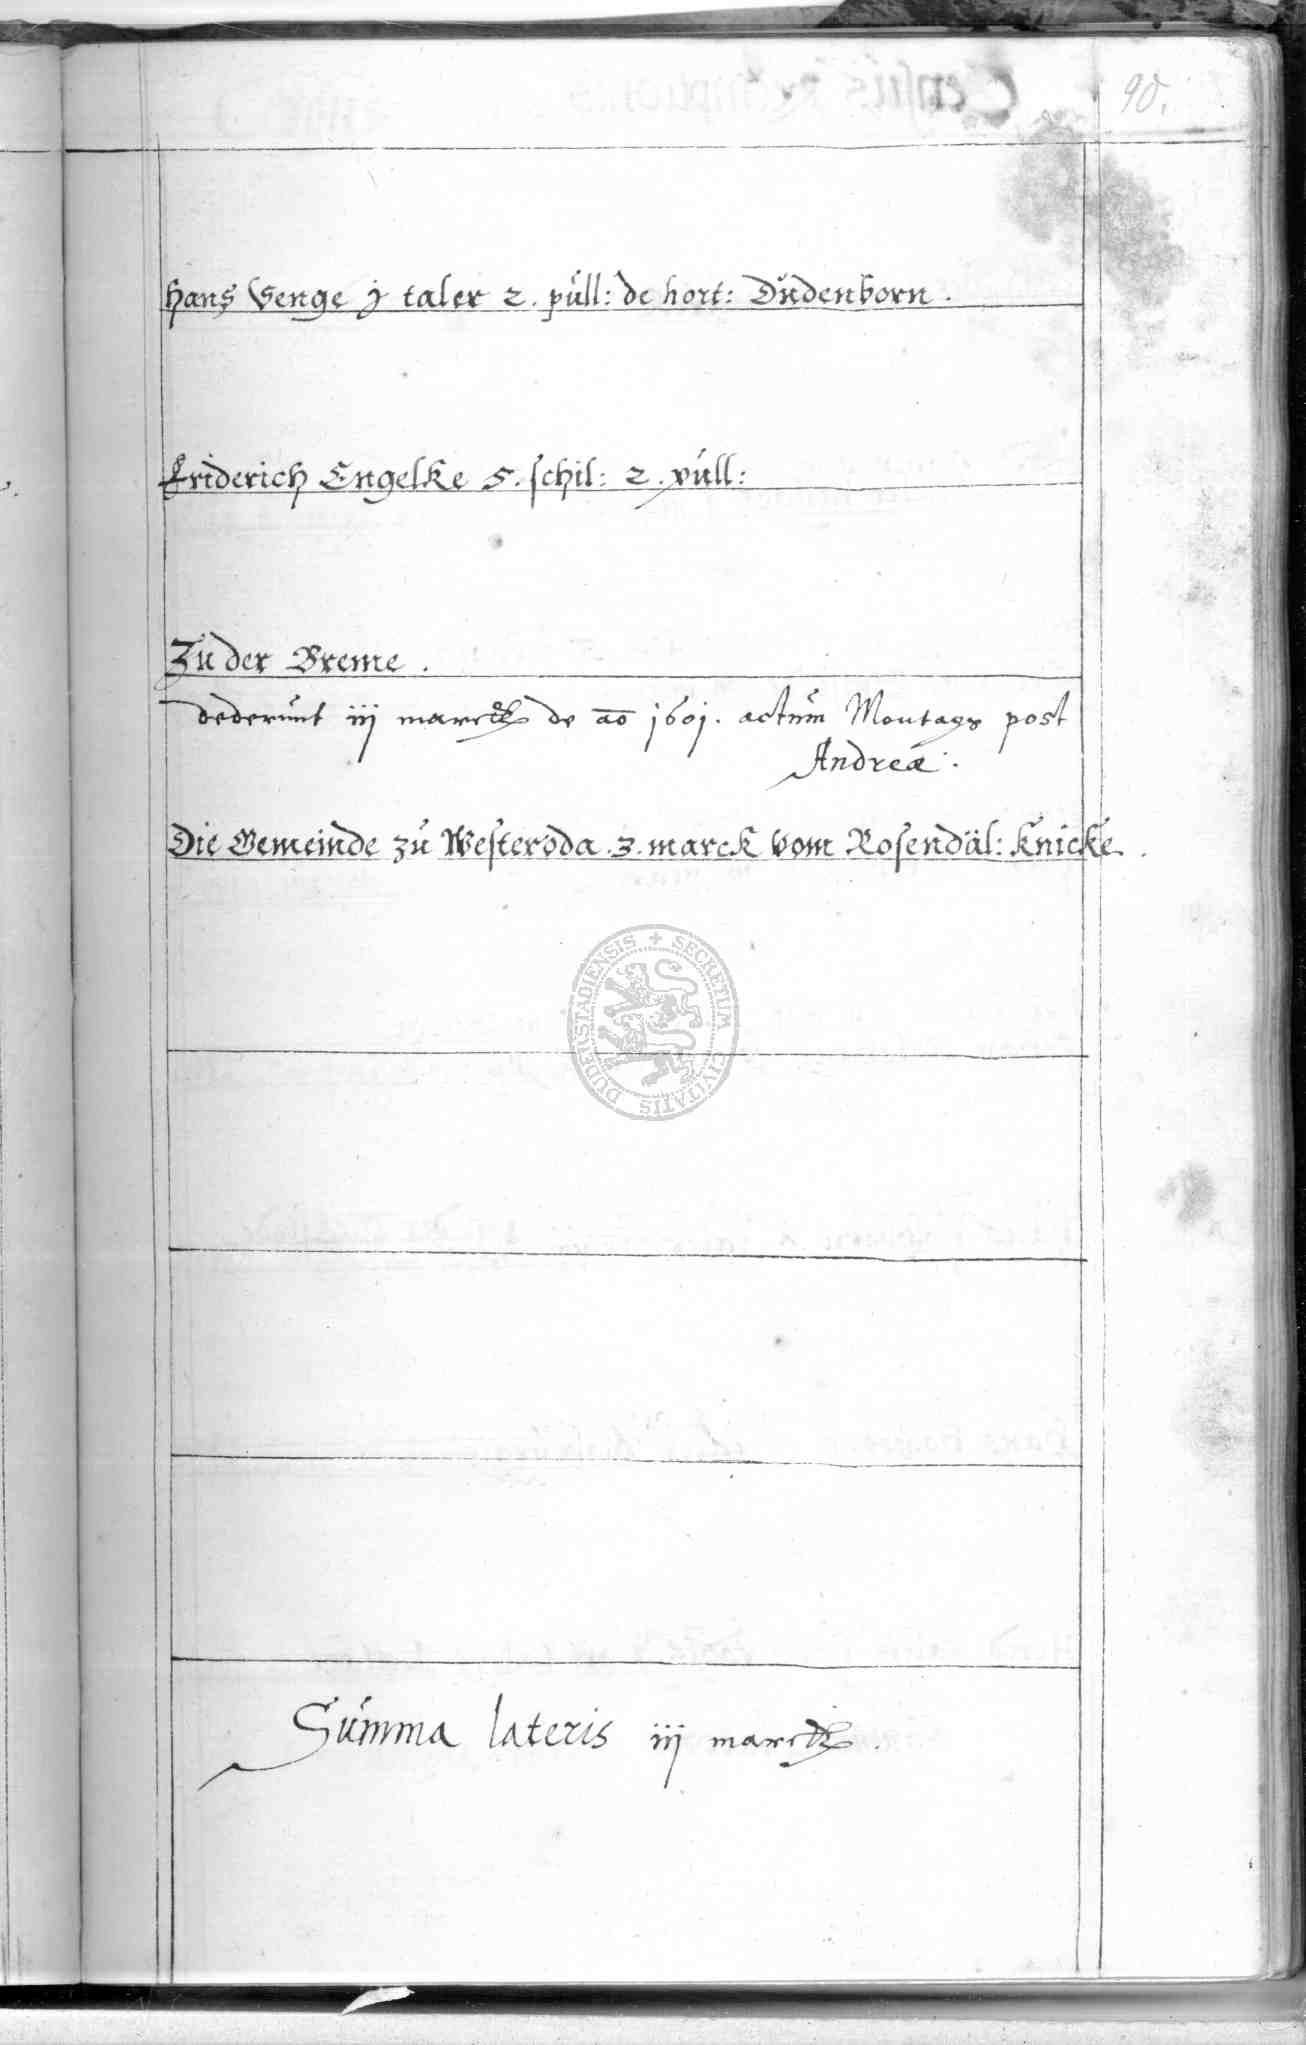 90.
Hans Senge j taler 2. püll: de hort: Düdenborn.
Friderich Engelke 5. schil: 2. püll:
Zu der Breme.
dederunt iij marck de ao 1601. actum Montags post
Andreæ.
Die Gemeinde zu Westeroda. 3. marck vom Rosendäl: Knicke.
SECRETUM CIVITATIS DUDERSTADIENSIS
Summa lateris iij marck.